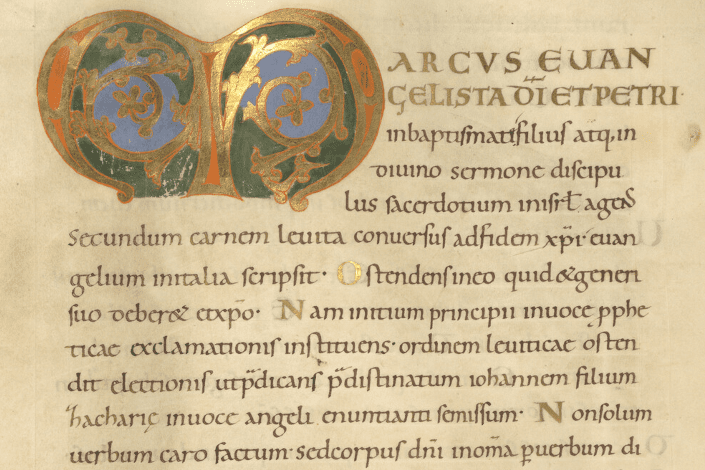 MARCVS EVAN
GELISTA DI ET PETRI·
in baptismatis filius atq, in
divino sermone discipu
lus sacerdotium in isrl agens
Secundum carnem levita conversus ad fidem xpi· evan
gelium in italia scripsit· Ostendens in eo quid & generi
suo deber& et xpo· Nam initium principii in voce pphe
ticae exclamationis instituens· ordinem leviticae osten
dit electionis ut pdicans pdistinatum iohannem filium
hacharię in voce angeli enuntianti semissum· Non solum
verbum caro factum· sed corpus dni in oma p verbum di